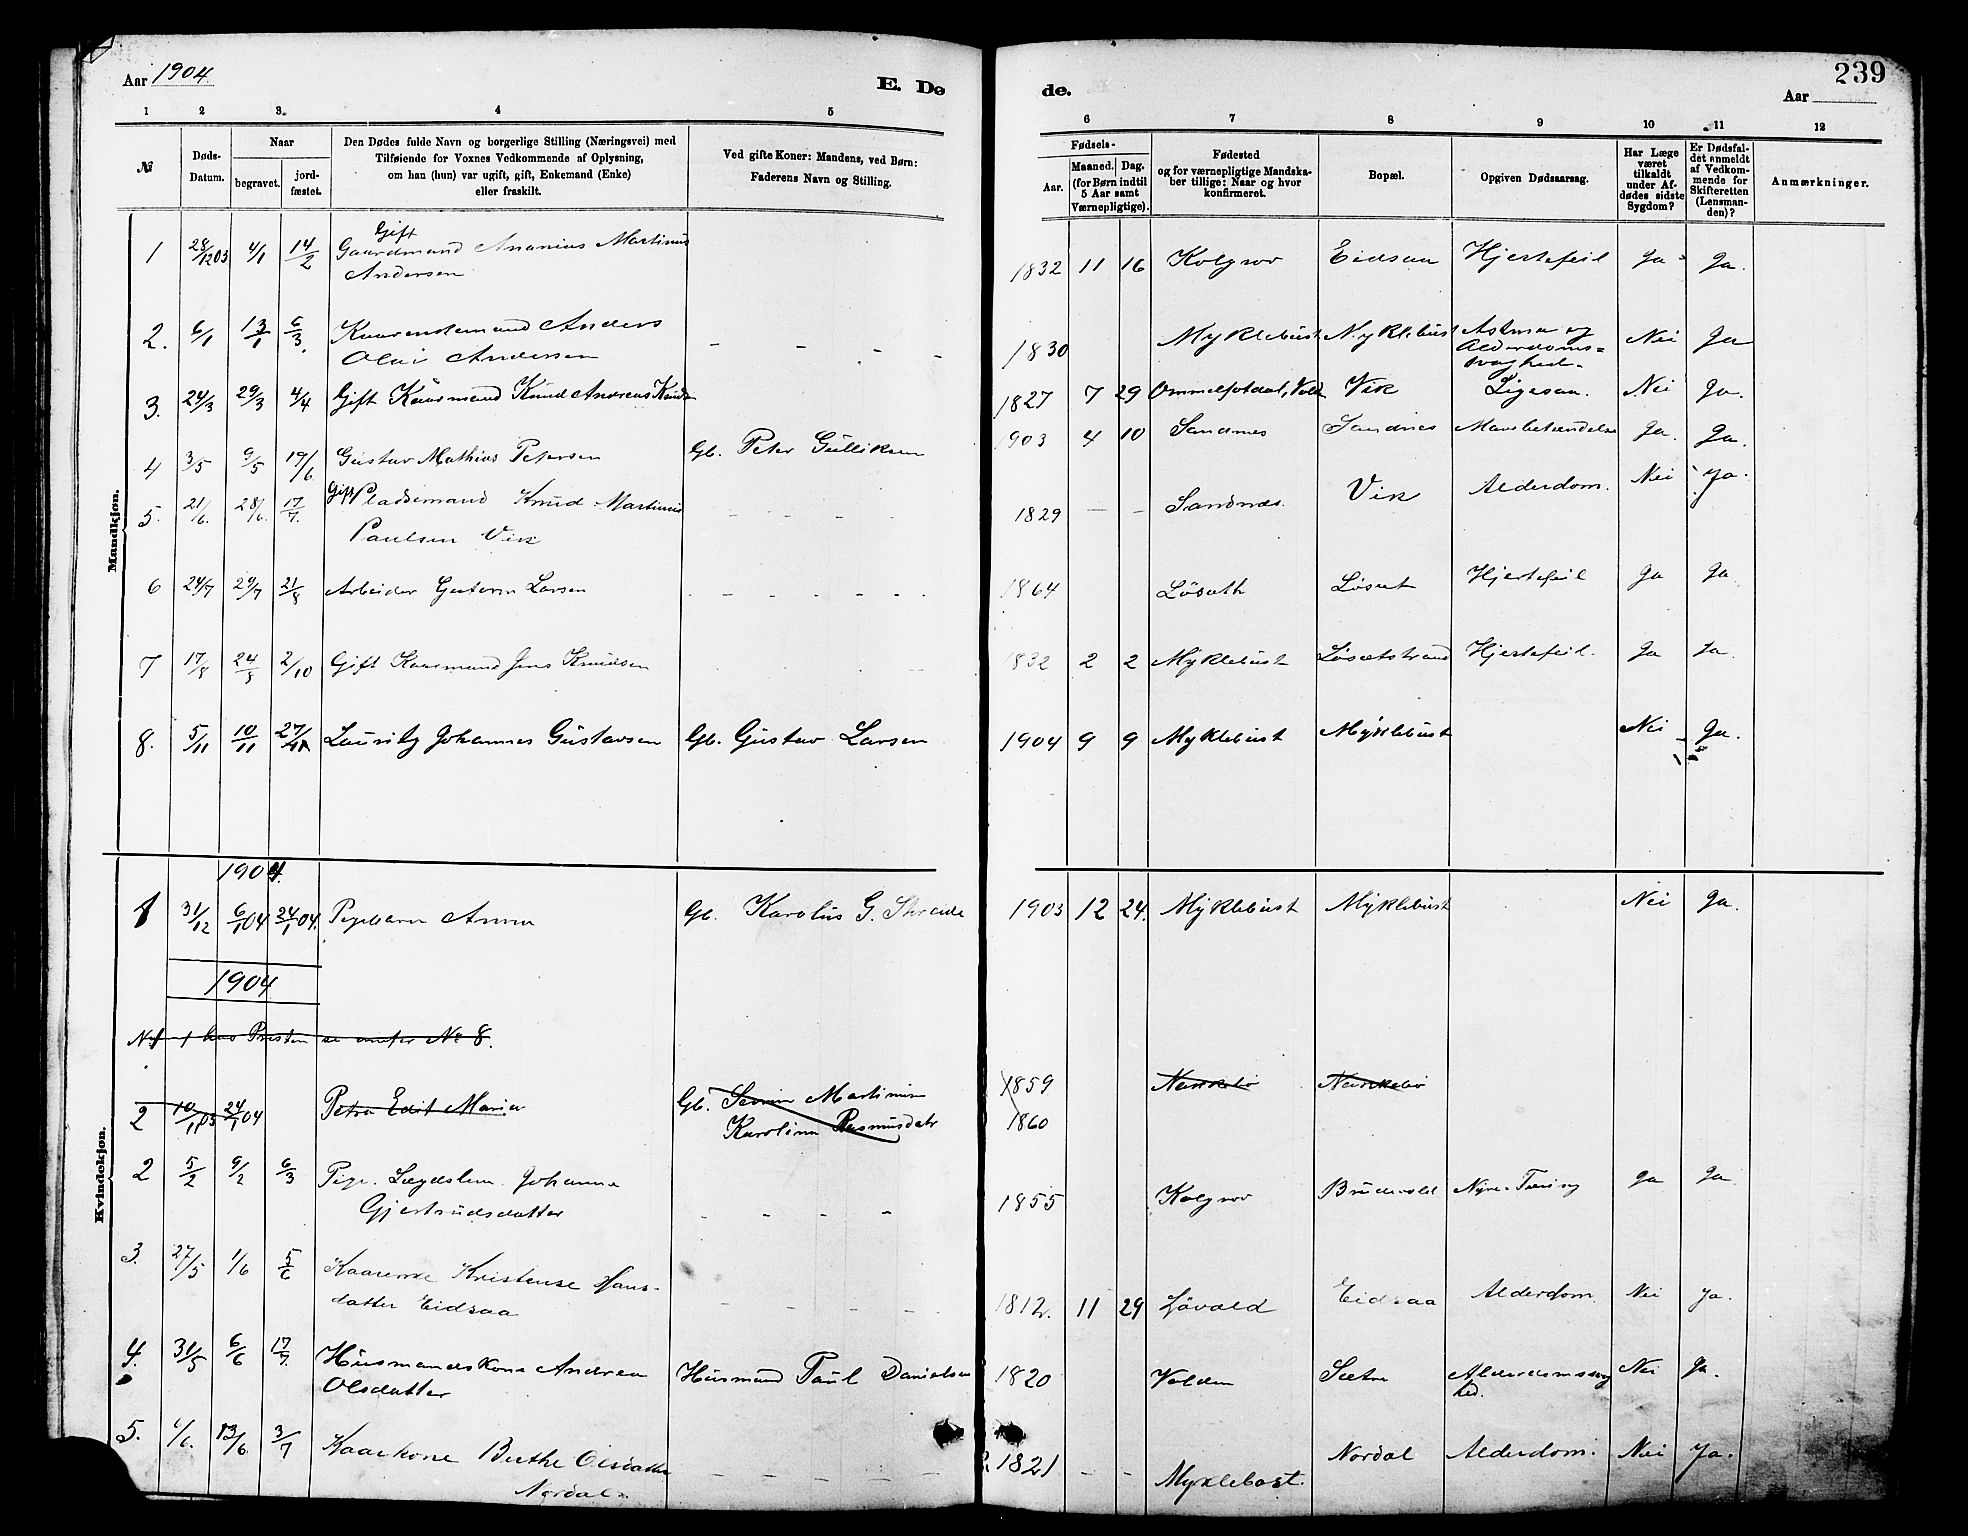 Aar 1904.
E. Dø
de.
239
Aar
1 2 3. 4 5 6 7 8 9 10 11 12
№
Døds-Datum.
Naar
begravet.
jord-fæstet.
Den Dødes fulde Navn og borgerlige Stilling (Næringsvei) med
Tilføiende for Voxnes Vedkommende af Oplysning,
om han (hun) var ugift, gift, Enkemand (Enke)
eller fraskilt.
Ved gifte Koner: Mandens, ved Børn:
Faderens Navn og Stilling.
Fødsels-
Aar.
Maaned. Dag.
(for Børn indtil
5 Aar samt
Værnepligtige).
Fødested
og for værnepligtige Mandska-
ber tillige: Naar og hvor
konfirmeret.
Bopæl.
Opgiven Dødsaarsag.
Har Læge
været
tilkaldt
under Af-
dødes sidste
Sygdom?
Er Dødsfal-
det anmeldt
af Vedkom-
mende for
Skifteretten
(Lensman-
den)?
Anmærkninger.
Mandkjøn.
1 28/12 03 4/1 14/2 Gift Gaardmand Ananias Martinus 1832 11 16 Kolgrov Eidsaa Hjertefeil Ja Ja.
Andersen
2. 6/1 13/1 6/3. Anders 1830 Myklebust Myklebust Astma og Nei Ja
Olai Andersen - - - - Alderdoms=
svaghed.
3. 24/3 29/3 4/4 Gift Kaarmand Knud Andreas Knudsen 1827 7 29 Vik Nei Ja.
4 3/5 9/5 19/6 Gustav Mathias Petersen Gb. Peter Gulliksen 1903 4 10 Sandnes Sandnes Mavebetændelse Ja. Ja.
5. 21/6. 28/6. 17/7. Gift Pladsemand Knud Martinus - - - - 1829 - - Sandnæs. Vik Alderdom. Nei Ja.
Paulsen Vik
6 24/7 29/7 21/8 Arbeider Larsen - - - - - - 1864 Løsæth Løsæt Hjertefeil Ja Ja
7 17/8 24/8 2/10 Gift Kaarmand Jens Knudsen 1832 2 2 Myklebust Løsætstrand Hjertefeil. Ja Ja.
8. 5/11 10/11 27/11 Lauritz Johannes Gustavsen Gb. Gustav Larsen 1904 9 9 Myklebust Myklebust Nei Ja.
Kvindekjøn.
1904.
1 31/12 6/1 04 24/1 04. Pigebarn Anna Gb. Karolus G. 1903 12 24. Myklebust Myklebust Nei Ja.
1904
№ 1 Presten № 8.
2 10/11 03 24/1 04 Petra Edit Maria Gb. Severin Martinsen 1859
Karoline Rasmusdatr 1860
2 5/2 9/2 6/3 Pige. Lægdslem. Johanna 1855 Kolgrov Brudevold Nyre-Tæring Ja Ja
Gjertrudsdatter - - - -
3. 27/5 1/6 5/6 Kaarenke Kristense Hans- 1812. 11 29 Løvold Eidsaa Alderdom. Nei Ja.
datter Eidsaa - - - - -
4. 31/5 6/6 17/7. Husmandskone Andrea Husmand Paul Danielsen 1820 Volden Sætre Alderdomssvag Nei Ja.
Olsdatter hed.
5. 1/6. 13/6 3/7 Kaarkone Berthe - - - - - 1821 - - Myklebost. Nordal Alderdom. Nei Ja.
Nordal.